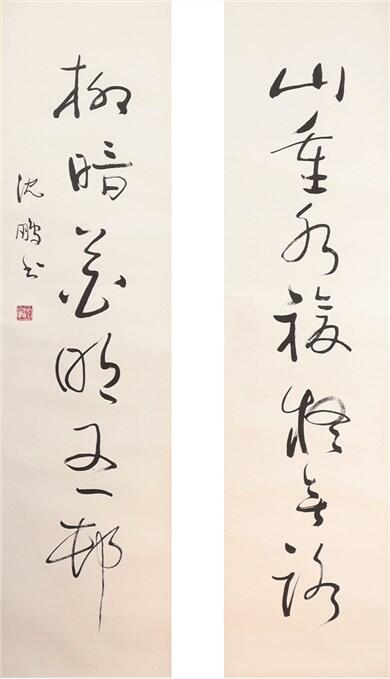 山重水複疑無路
柳暗花明又一邨
沈鵬書